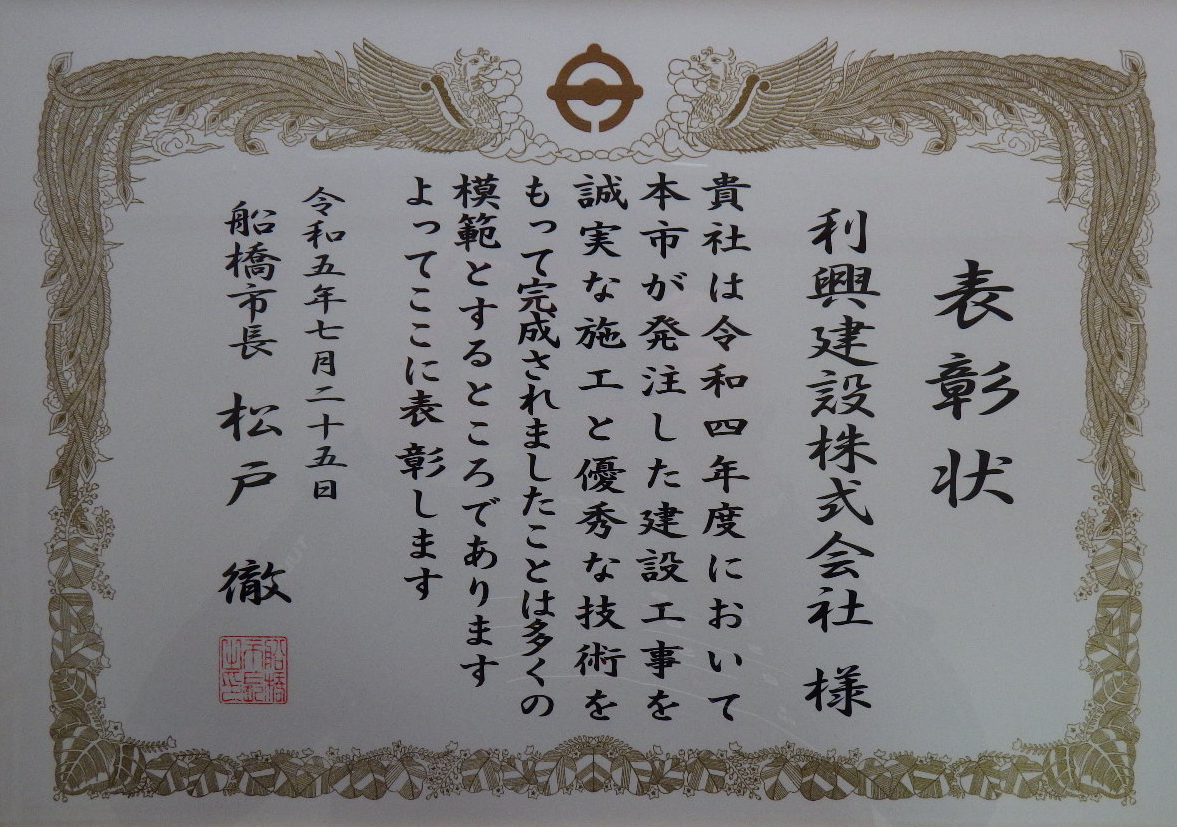 表彰状
利興建設株式会社 様
貴社は令和四年度において
本市が発注した建設工事を
誠実な施工と優秀な技術を
もって完成されましたことは多くの
模範とするところであります
よってここに表彰します
令和五年七月二十五日
船橋市長 松戸 徹
船橋市長之印